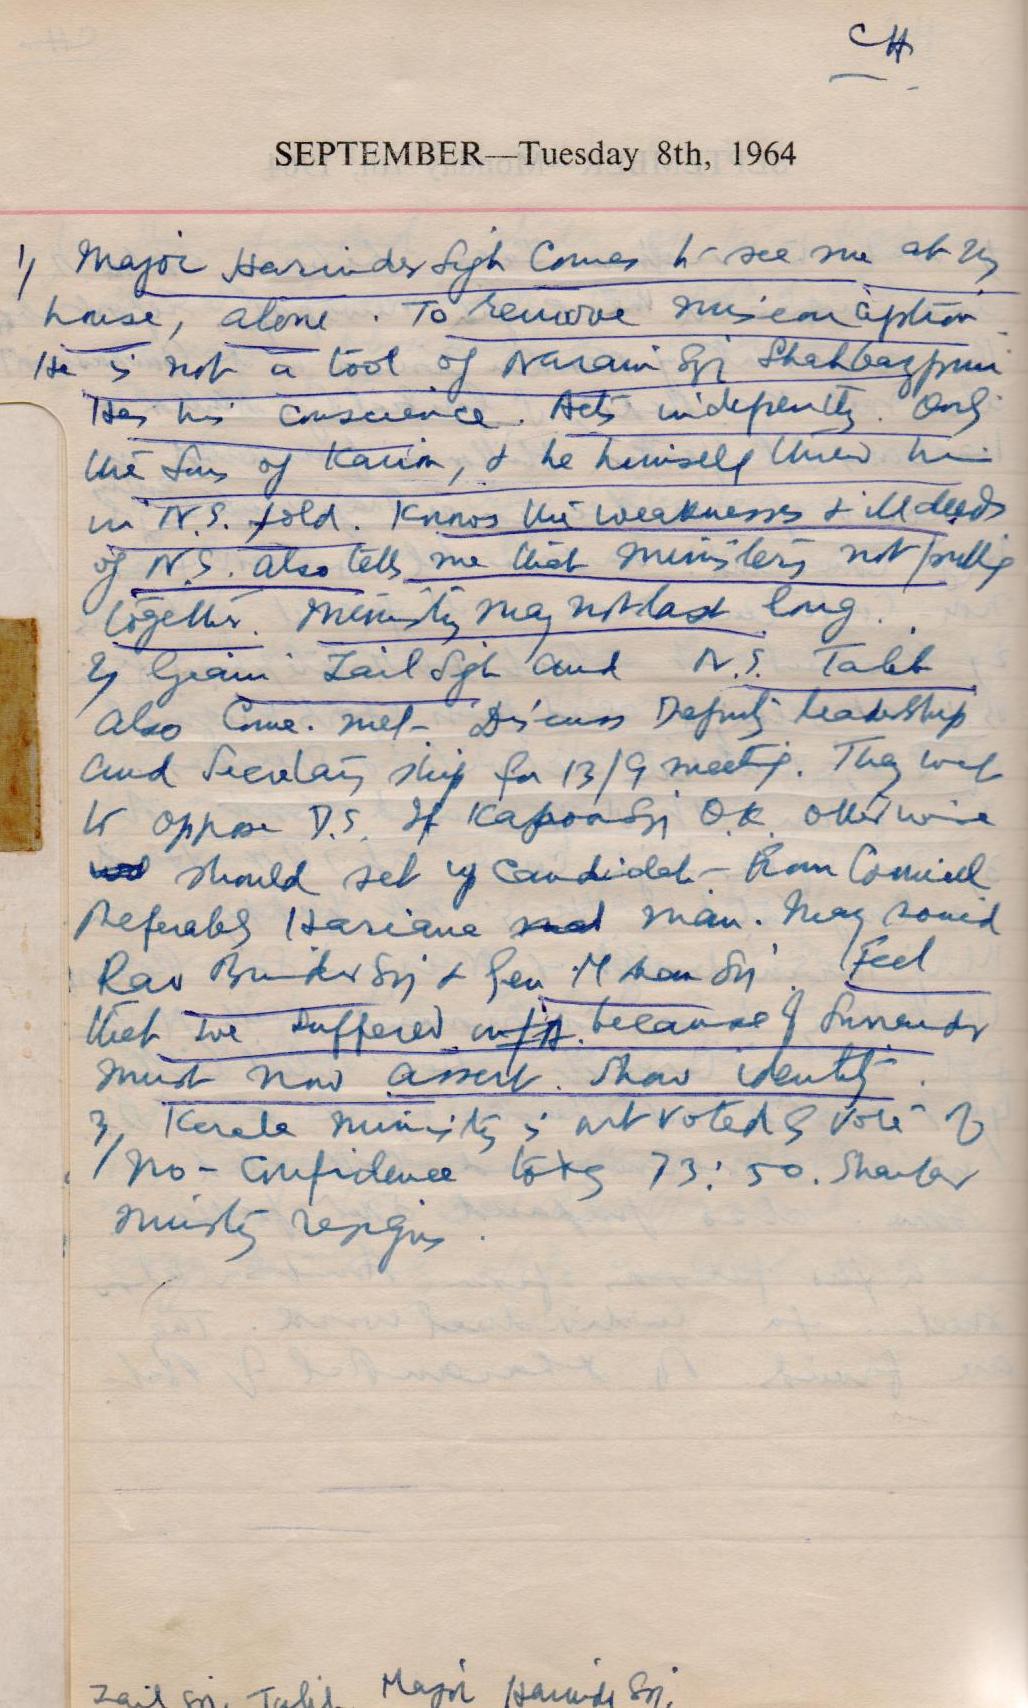 CH
SEPTEMBER—Tuesday 8th, 1964
1) Major Harinder Sigh Comes to see me at my
house, alone. To remove misconception
He is not a tool of Narain Sgj Shahbazpuri
Has his conscience. Acts indepently. Only
the Sins of Kairon, & he himself threw him
in N.S. fold. Knows the weaknesses & ill deeds
of N.S. also tells me that ministers not pulling
together. Ministry may not last long.
2) Giani Zail Sgh and N.S. Talib
also Come. met- Discuss Deputy leadership
and Secretary ship for 13/9 meeting. They want
to oppose D.S. If Kapoor Sgj O.K. otherwise
should set up candidate- from Council
Preferably Hariana man. May sound
Rao Birinder Sgj & Gen Mohan Sgj. Feel
that we suffered because of Surrender
must now assert. Show identity.
3) Kerala ministry is out voted by vote of
no-confidence 73:50. Shankar
ministry resigns.
Zail Sgj. Talib. Major Harinder Sgj.